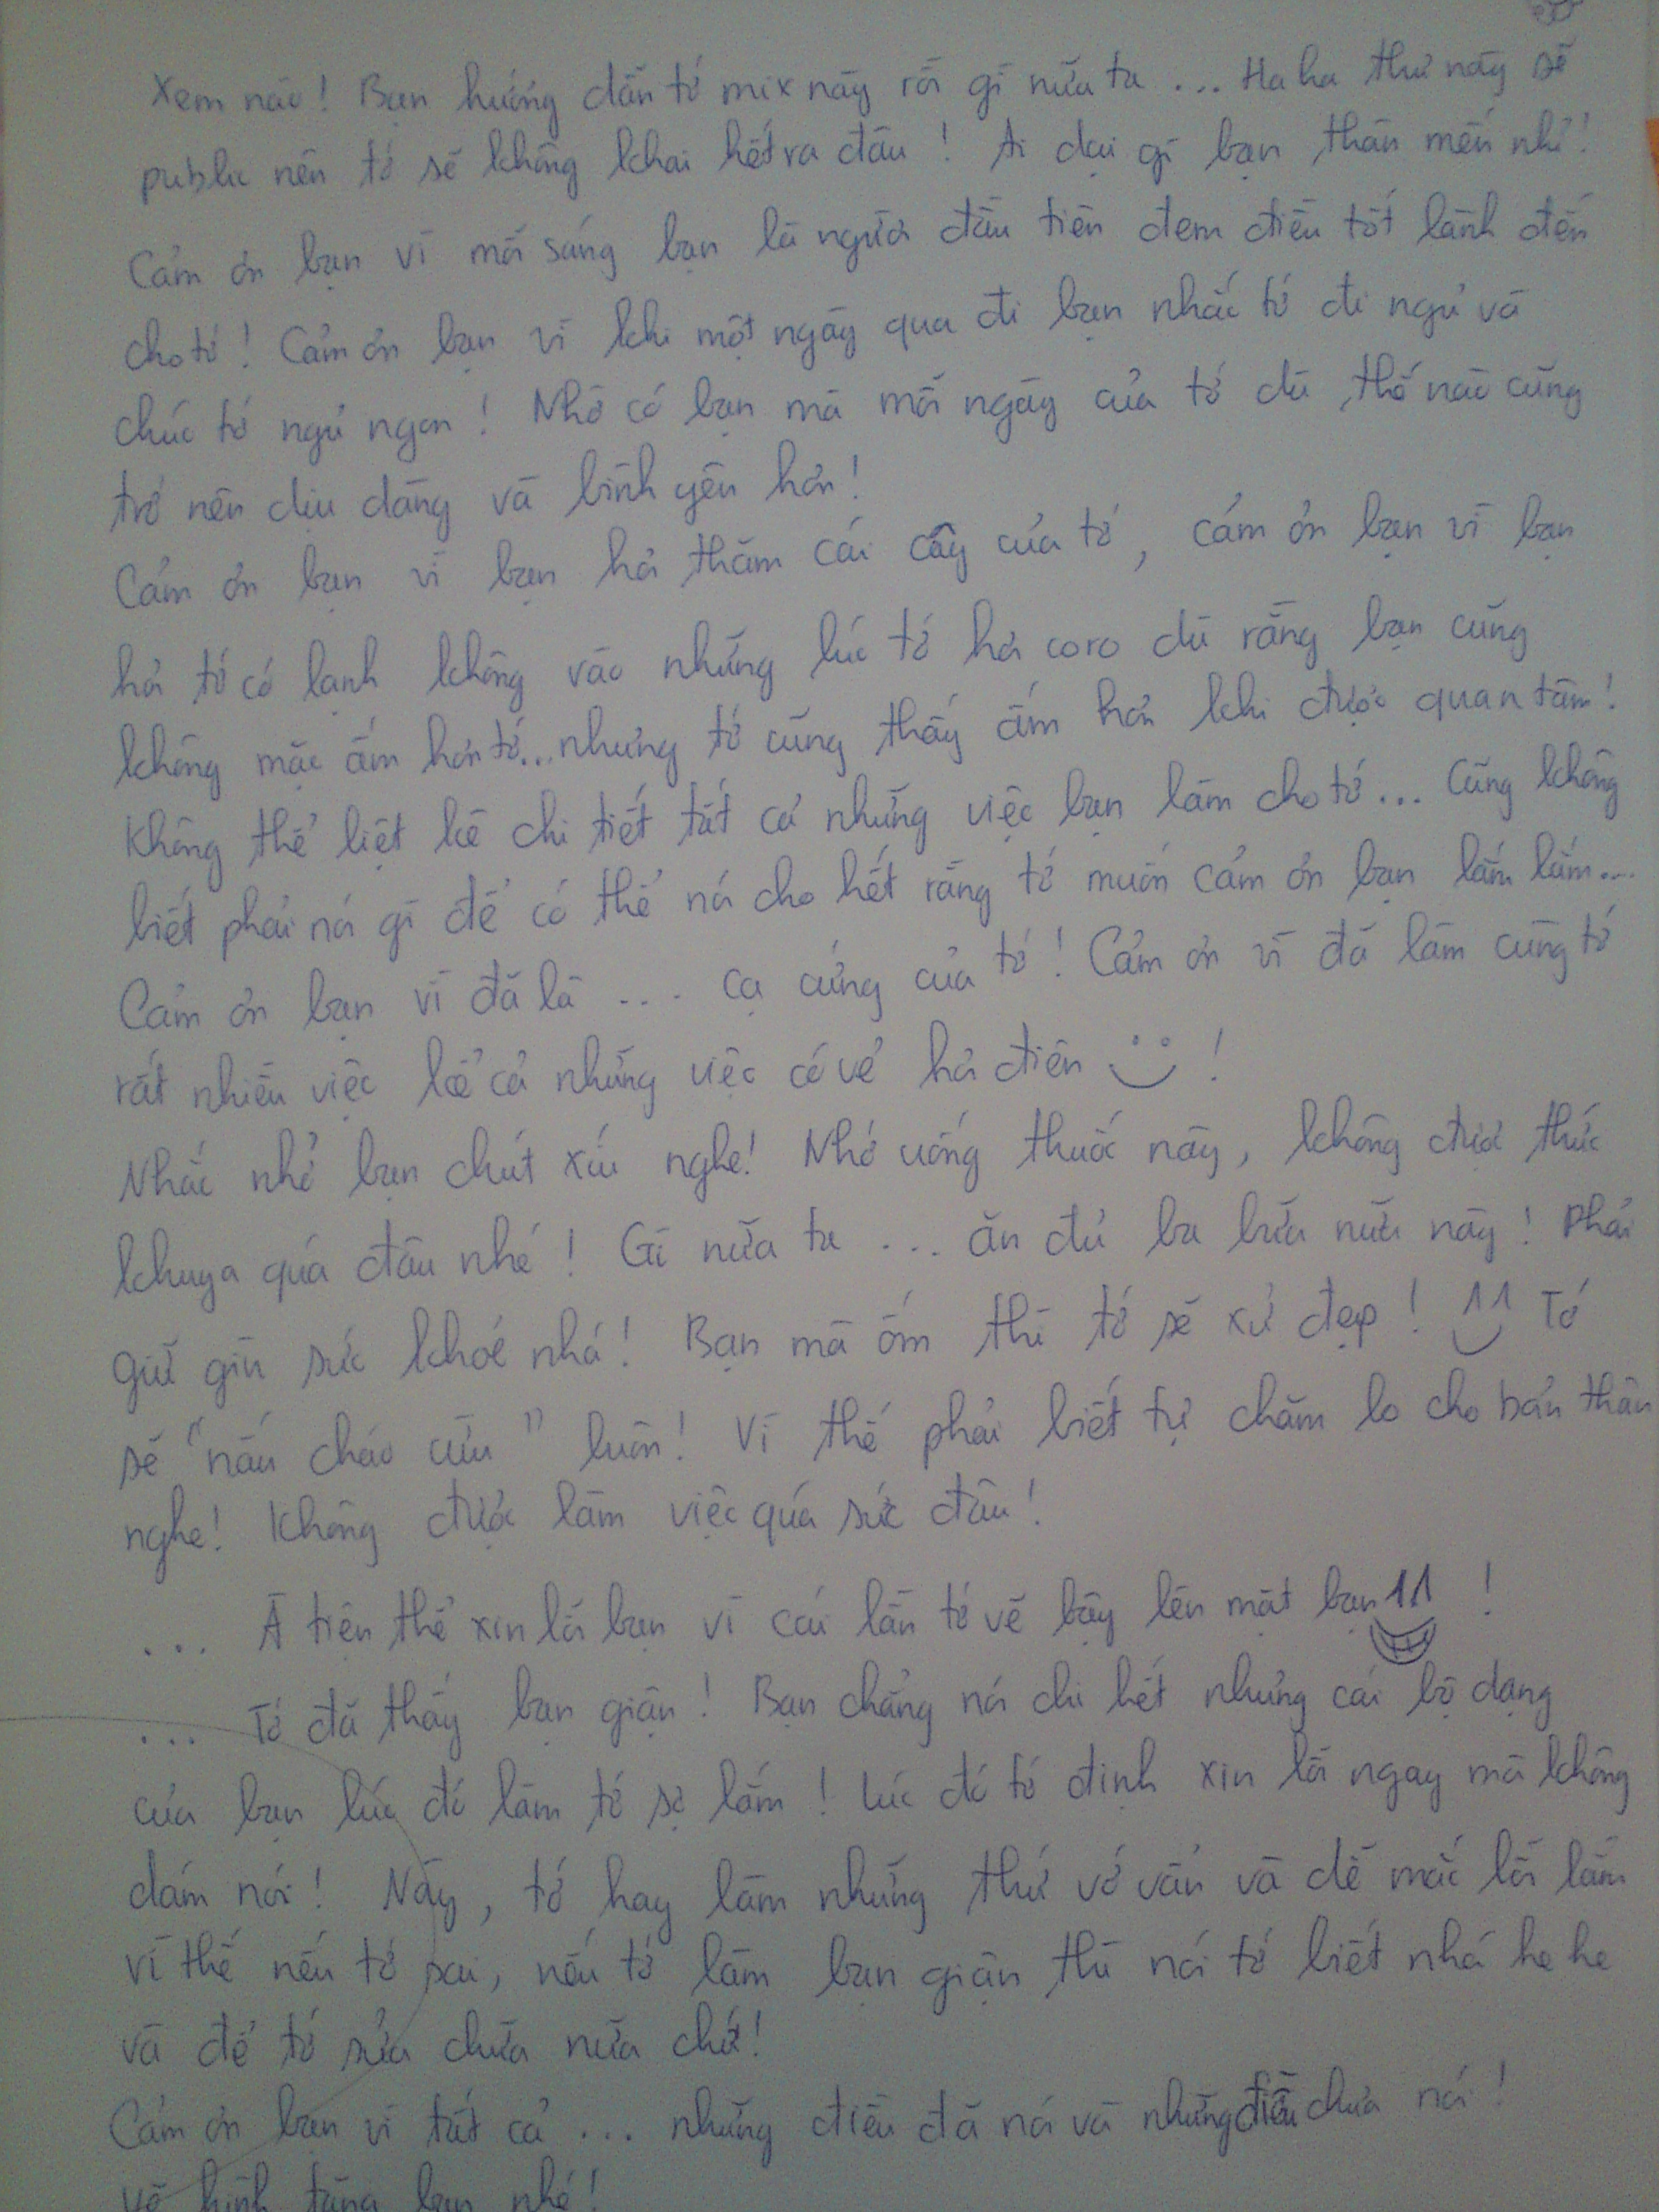 Xem nào! Bạn hướng dẫn tớ mix này rồi gì nữa ta ... Ha ha thư này sẽ
public nên tớ sẽ không khai hết ra đâu! Ai dại gì bạn thân mến nhỉ!
Cảm ơn bạn vì mỗi sáng bạn là người đầu tiên đem điều tốt lành đến
cho tớ! Cảm ơn bạn vì khi một ngày qua đi bạn nhắc tớ đi ngủ và
chúc tớ ngủ ngon! Nhờ có bạn mà mỗi ngày của tớ dù thế nào cũng
trở nên dịu dàng và bình yên hơn!
Cảm ơn bạn vì bạn hỏi thăm cái cây của tớ, cám ơn bạn vì bạn
hỏi tớ có lạnh không vào những lúc tớ hơi coro dù rằng bạn cũng
không mặc ấm hơn tớ... nhưng tớ cũng thấy ấm hơn khi được quan tâm!
Không thể liệt kê chi tiết tất cả những việc bạn làm cho tớ ... Cũng không
biết phải nói gì để có thể nói cho hết rằng tớ muốn cảm ơn bạn lắm lắm...
Cảm ơn bạn vì đã là .... cạ cứng của tớ! Cảm ơn vì đã làm cùng tớ
rất nhiều việc kể cả những việc có vẻ hơi điên !
Nhắc nhở bạn chút xíu nghe! Nhớ uống thuốc này, không được thức
khuya quá đâu nhé! Gì nữa ta ... ăn đủ ba bữa nữa này! Phải
giữ gìn sức khoẻ nhá! Bạn mà ốm thì tớ sẽ xử đẹp! Tớ
sẽ "nấu cháo cừu" luôn! Vì thế phải biết tự chăm lo cho bản thân
nghe! Không được làm việc quá sức đâu!
... À tiện thể xin lỗi bạn vì cái lần tớ vẽ bậy lên mặt bạn !
... Tớ đã thấy bạn giận! Bạn chẳng nói chi hết nhưng cái bộ dạng
của bạn lúc đó làm tớ sợ lắm! Lúc đó tớ định xin lỗi ngay mà không
dám nói! Này, tớ hay làm những thứ vớ vẩn và dễ mắc lỗi lắm
vì thế nếu tớ sai, nếu tớ làm bạn giận thì nói tớ biết nhá he he
và để tớ sửa chữa nữa chứ!
Cảm ơn bạn vì tất cả ... những điều đã nói và những điều chưa nói!
vẽ hình tặng bạn nhé!